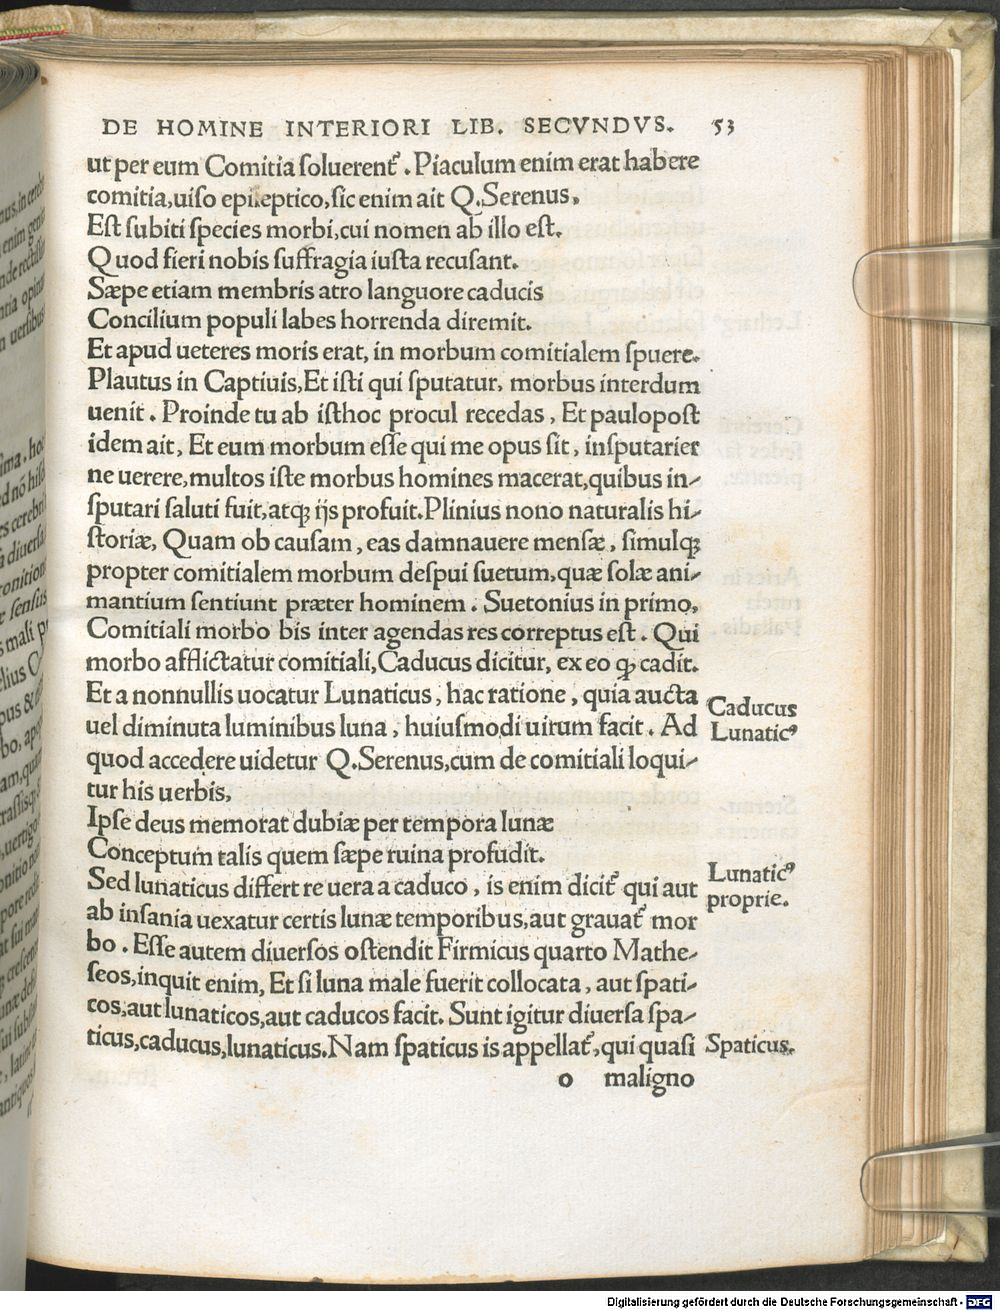 DE HOMINE INTERIORI LIB. SECVNDVS. 53
ut per eum Comitia ſoluerent᷒. Piaculum enim erat habere
comitia,uiſo epileptico,ſic enim ait Q.Serenus,
Eſt ſubiti ſpecies morbi,cui nomen ab illo eſt,
Quod fieri nobis ſuffragia iuſta recuſant.
Sæpe etiam membris atro languore caducis
Concilium populi labes horrenda diremit.
Et apud ueteres moris erat, in morbum comitialem ſpuere.
Plautus in Captiuis,Et iſti qui ſputatur, morbus interdum
uenit. Proinde tu ab iſthoc procul recedas, Et paulopoſt
idem ait, Et eum morbum eſſe qui me opus ſit, inſputarier
ne uerere,multos iſte morbus homines macerat,quibus in-
ſputari ſaluti fuit,atqꝫ ijs profuit.Plinius nono naturalis hi-
ſtoriæ, Quam ob cauſam, eas damnauere menſæ, ſimulqꝫ
propter comitialem morbum deſpui ſuetum,quæ ſolæ ani-
mantium ſentiunt præter hominem. Suetonius in primo,
Comitiali morbo bis inter agendas res correptus eſt. Qui
morbo afflictatur comitiali,Caducus dicitur, ex eo qꝫ cadit.
Et a nonnullis uocatur Lunaticus, hac ratione, quia aucta
Caducus
uel diminuta luminibus luna, huiuſmodi uirum facit. Ad
Lunaticꝰ
quod accedere uidetur Q.Serenus,cum de comitiali loqui-
tur his uerbis,
Ipſe deus memorat dubiæ per tempora lunæ
Conceptum talis quem ſæpe ruina profudit.
Sed lunaticus differt re uera a caduco, is enim dicit᷒ qui aut
Lunaticꝰ
proprie.
ab inſania uexatur certis lunæ temporibus,aut grauat᷒ mor
bo. Eſſe autem diuerſos oſtendit Firmicus quarto Mathe-
ſeos,inquit enim, Et ſi luna male fuerit collocata, aut ſpati-
cos,aut lunaticos,aut caducos facit. Sunt igitur diuerſa ſpa-
ticus,caducus,lunaticus.Nam ſpaticus is appellat᷒,qui quaſi
Spaticus.
o maligno
Digitalisierung gefördert durch die Deutsche Forschungsgemeinschaft - DFG